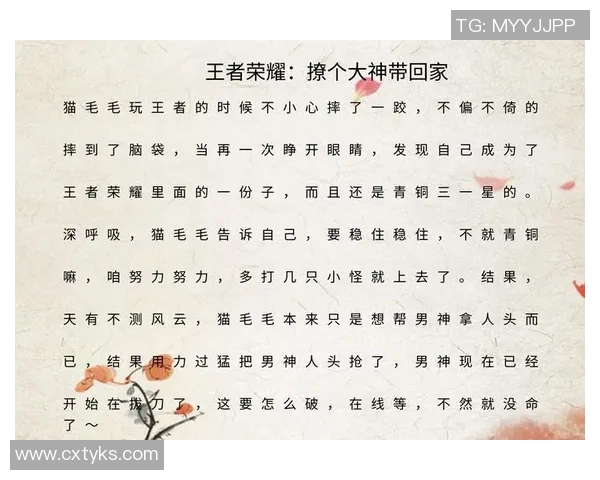 TG: MYYJJPP
王者荣耀：撩个大神带回家
猫毛毛玩王者的时候不小心摔了一跤，不偏不倚的
摔到了脑袋，当再一次睁开眼睛，发现自己成为了
王者荣耀里面的一份子，而且还是青铜三一星的。
深呼吸，猫毛毛告诉自己，要稳住稳住，不就青铜
嘛，咱努力努力，多打几只小怪就上去了。结果，
天有不测风云，猫毛毛本来只是想帮男神拿人头而
已，结果用力过猛把男神人头抢了，男神现在已经
开始在拔刀了，这要怎么破，在线等，不然就没命
了～
www.cxtyks.com